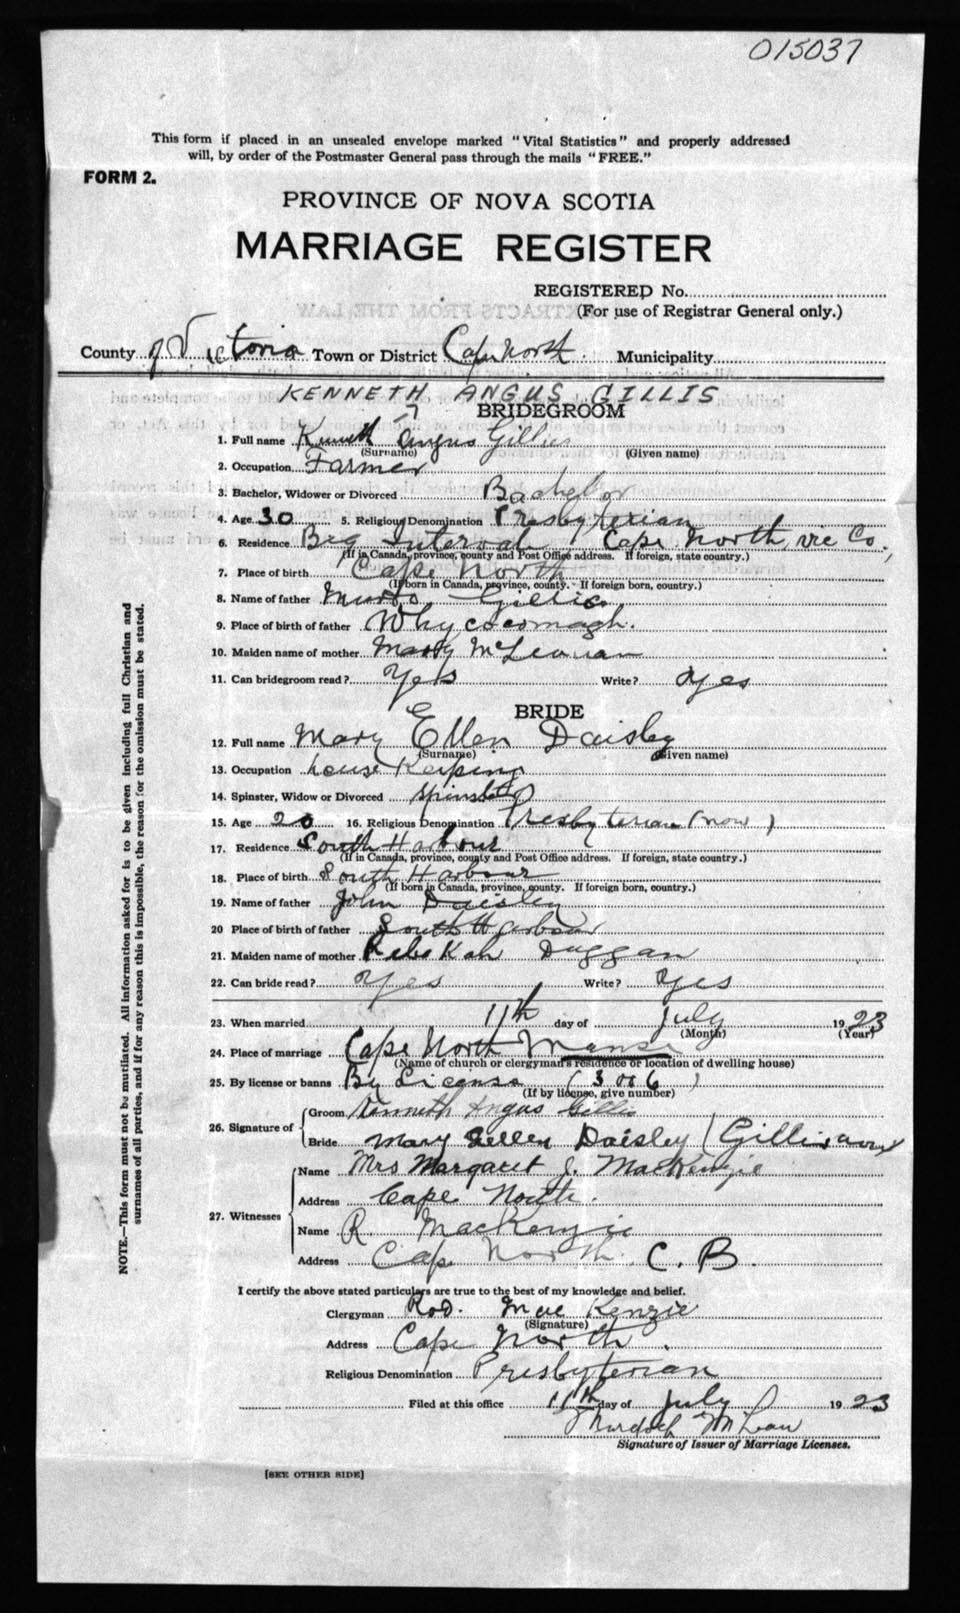 015037
This form if placed in an unsealed envelope marked "Vital Statistics" and properly addressed
will, by order of the Postmaster General pass through the mails "FREE."
FORM 2.
PROVINCE OF NOVA SCOTIA
MARRIAGE REGISTER
REGISTERED No.
(For use of Registrar General only.)
County of Victoria Town or District Cape North. Municipality
KENNETH ANGUS GILLIS
BRIDEGROOM
1. Full name Kenneth Angus Gillis
(Surname) (Given name)
2. Occupation Farmer
3. Bachelor, Widower or Divorced Bachelor
4. Age 30 5. Religious Denomination Presbyterian
6. Residence Big Intervale Cape North, Vic Co,
(If in Canada, province, county and Post Office address. If foreign, state country.)
7. Place of birth Cape North
(If born in Canada, province, county. If foreign born, country.)
8. Name of father Murdo Gillis
9. Place of birth of father Whycocomagh.
10. Maiden name of mother Mary McLennan
11. Can bridegroom read? Yes Write? Yes
BRIDE
12. Full name Mary Ellen Daisley
(Surname) (Given name)
13. Occupation house Keeping
14. Spinster, Widow or Divorced Spinster
15. Age 20 16. Religious Denomination Presbyterian (now)
17. Residence South Harbour
(If in Canada, province, county and Post Office address. If foreign, state country.)
18. Place of birth South Harbour
(If born in Canada, province, county. If foreign born, country.)
19. Name of father John Daisley
20 Place of birth of father South Harbour
21. Maiden name of mother Rebekah Duggan
22. Can bride read? Yes Write? Yes
23. When married 11th day of July 1923
(Month) (Year)
24. Place of marriage Cape North Manse
(Name of church or clergyman's residence or location of dwelling house)
25. By license or banns By License (3006)
(If by license, give number)
26. Signature of Groom Kenneth Angus Gillis
Bride Mary Ellen Daisley (Gillis now)
27. Witnesses Name Mrs Margaret J. MacKenzie
Address Cape North.
Name R MacKenzie
Address Cape North. C. B.
I certify the above stated particulars are true to the best of my knowledge and belief.
Clergyman Rod. MacKenzie
(Signature)
Address Cape North.
Religious Denomination Presbyterian
Filed at this office 11th day of July 1923
Murdoch McLean
Signature of Issuer of Marriage Licenses.
[SEE OTHER SIDE]
NOTE.—This form must not be mutilated. All information asked for is to be given including full Christian and
surnames of all parties, and if for any reason this is impossible, the reason for the omission must be stated.